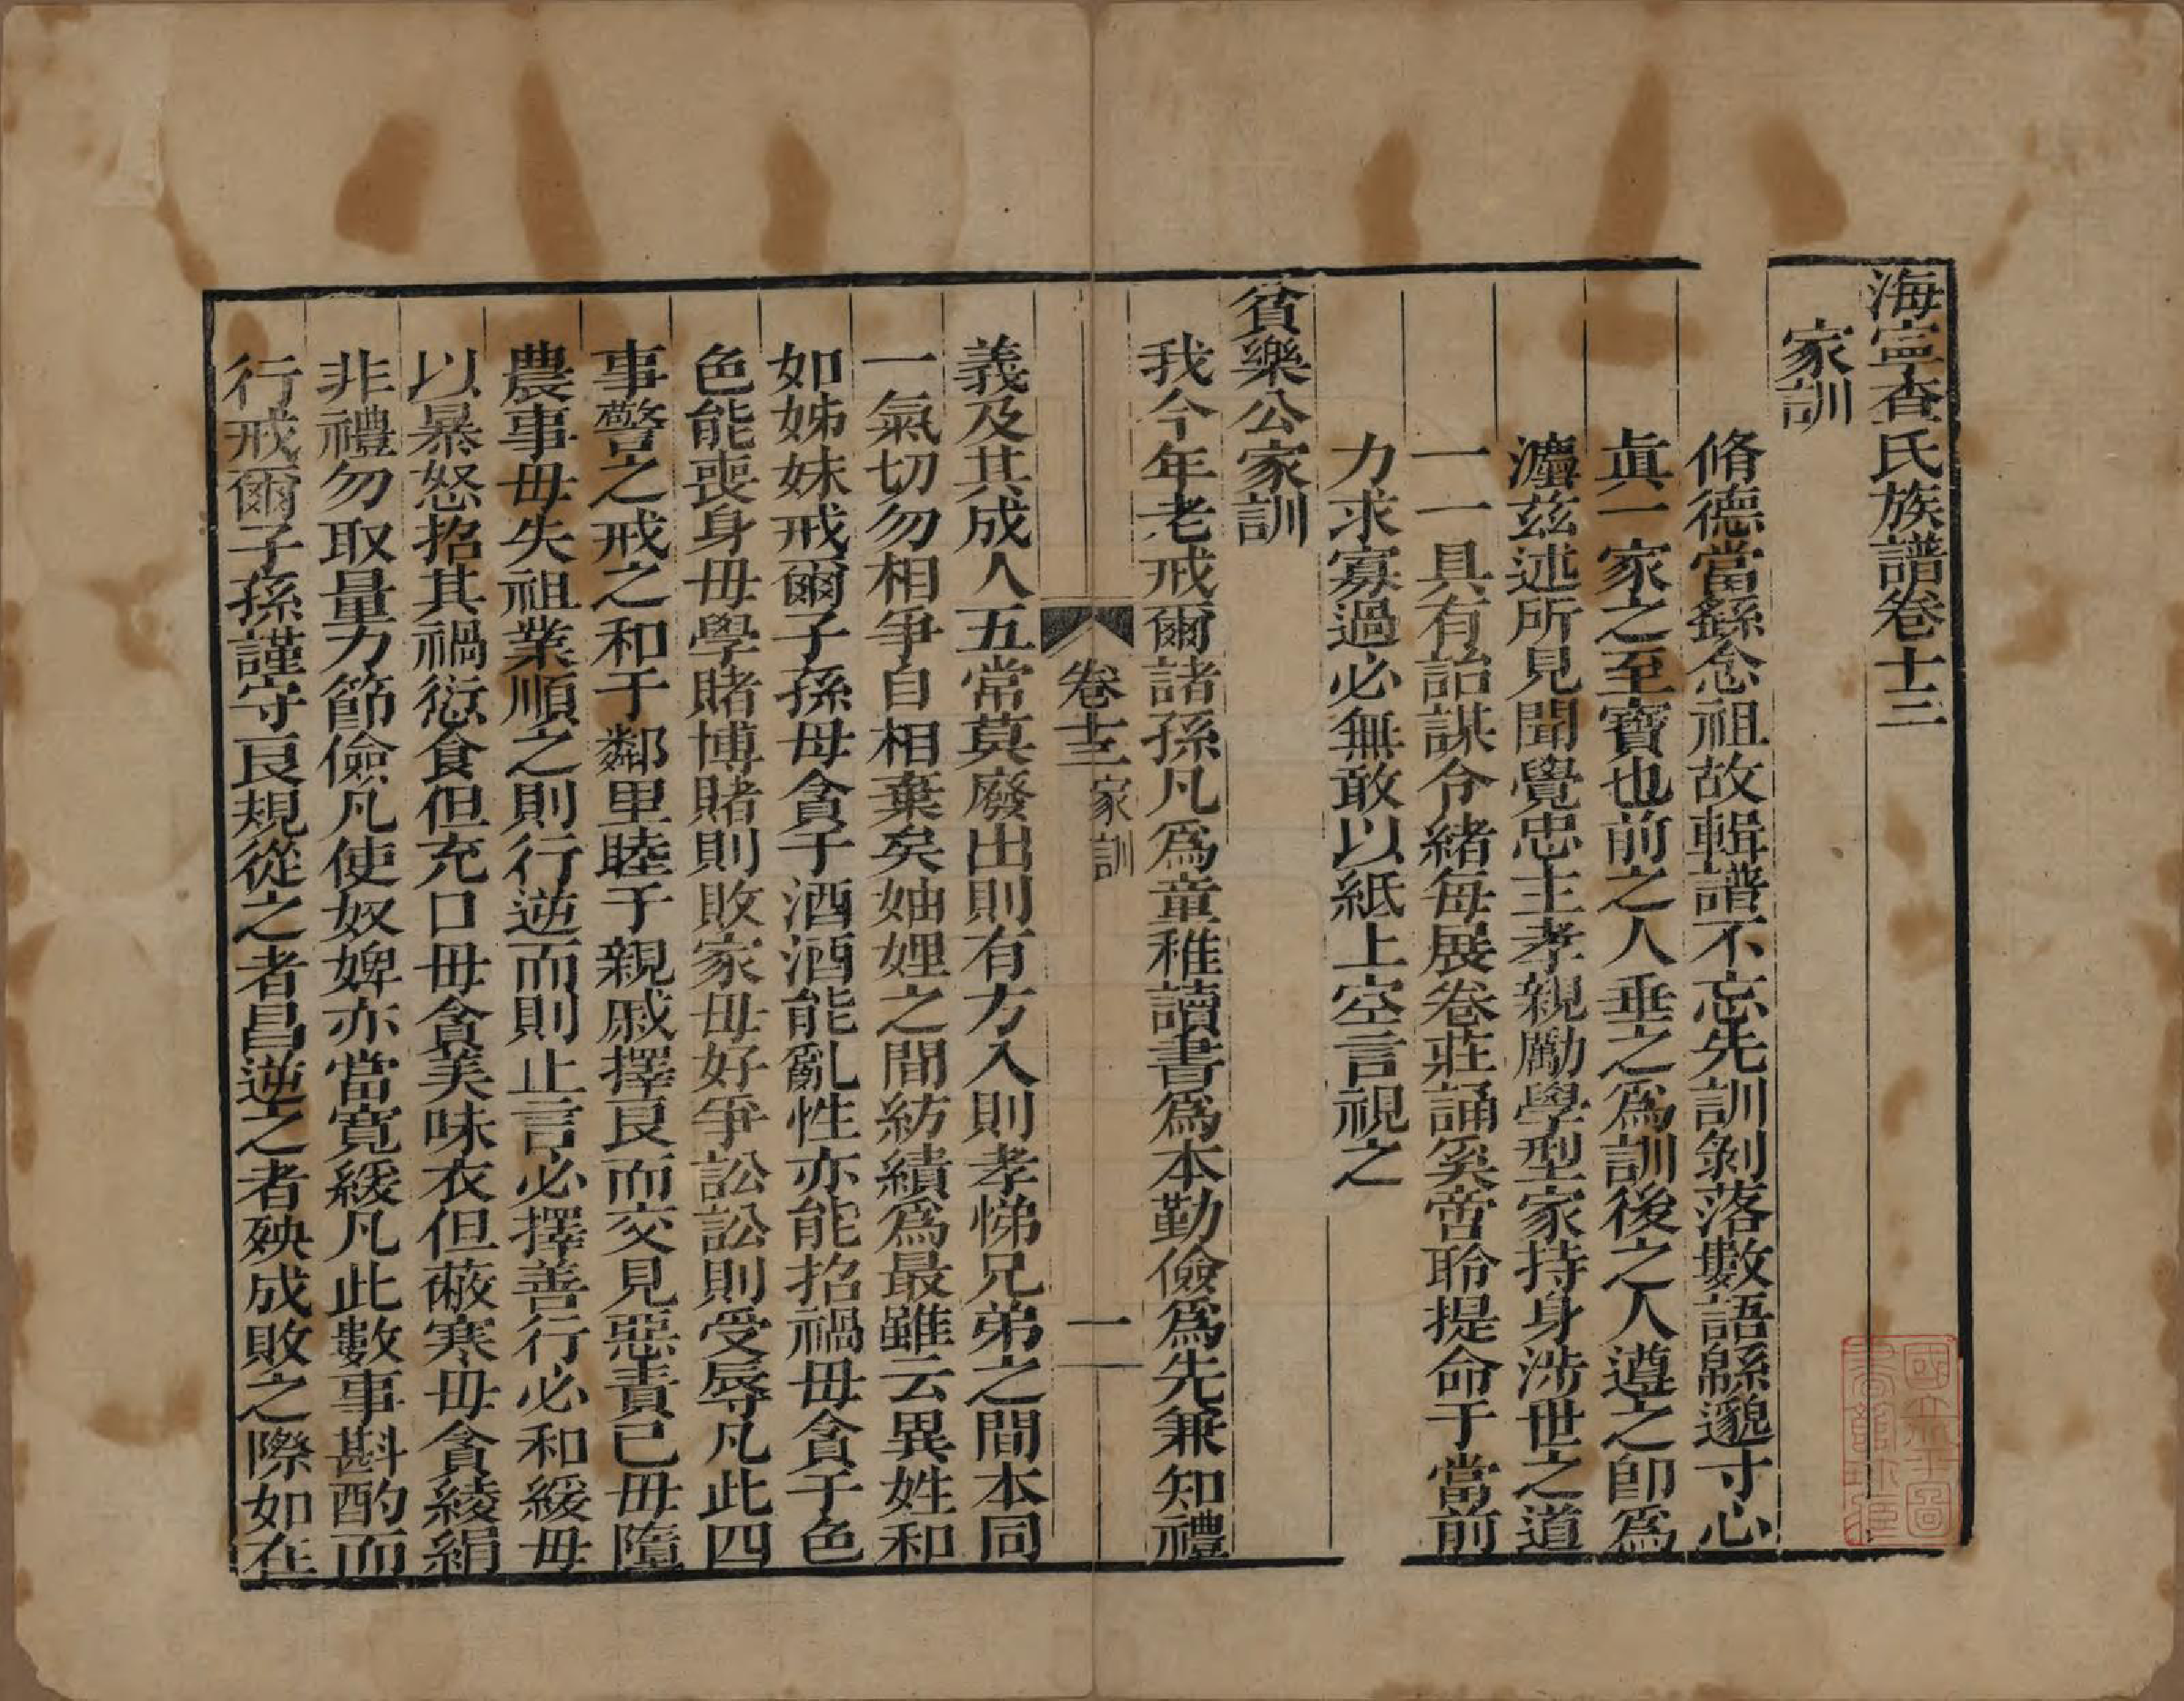 海寧查氏族譜卷十三
家訓
脩德當繇念祖故輯譜不忘先訓剝落數語緜邈寸心
眞一家之至寶也前之人垂之爲訓後之人遵之卽爲
灋茲述所見聞覺忠主孝親勵學型家持身涉世之道
一一具有詒謀分緒每展卷莊誦奚啻聆提命于當前
力求寡過必無敢以紙上空言視之
貧樂公家訓
我今年老戒爾諸孫凡爲童稚讀書爲本勤儉爲先兼知禮
卷十三
家訓
一
義及其成人五常莫廢出則有方入則孝悌兄弟之間本同
一氣切勿相爭自相棄矣妯娌之間紡績爲最雖云異姓和
如姊妹戒爾子孫毋貪于酒酒能亂性亦能招禍毋貪于色
色能喪身毋學賭博賭則敗家毋好爭訟訟則受辱凡此四
事警之戒之和于鄰里睦于親戚擇良而交見惡責已毋隳
農事毋失祖業順之則行逆而則止言必擇善行必和緩毋
以暴怒招其禍愆食但充口毋貪美味衣但蔽寒毋貪綾絹
非禮勿取量力節儉凡使奴婢亦當寬緩凡此數事斟酌而
行戒爾子孫謹守良規從之者昌逆之者殃成敗之際如在